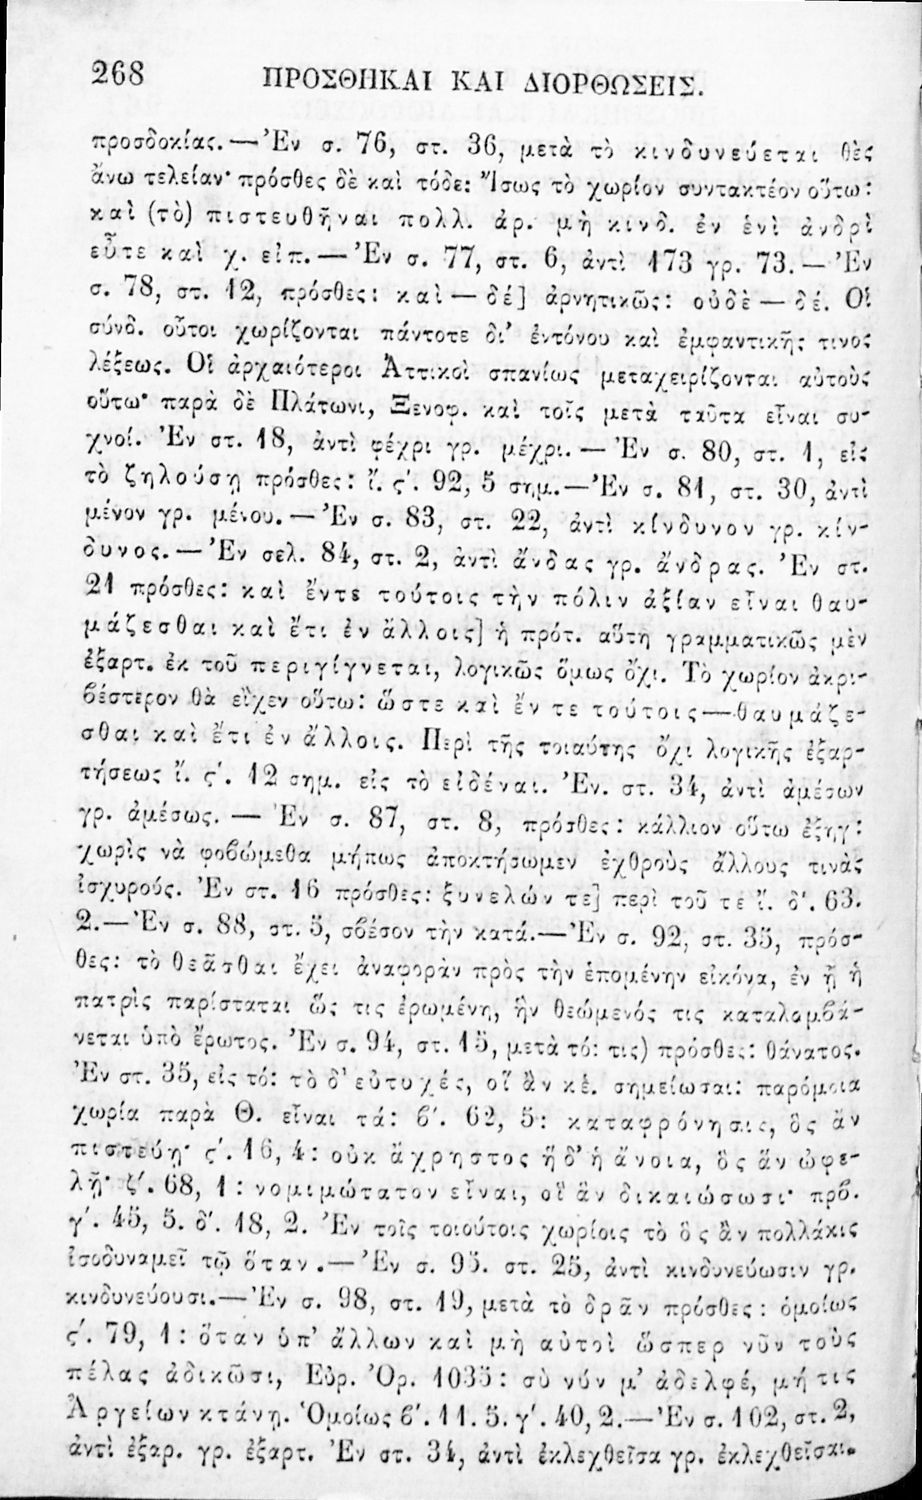 268 ΠΡΟΣΘΗΚΑΙ ΚΑΙ ΔΙΟΡΘΩΣΕΙΣ.
προσδοκίας. — Ἐν σ. 76, στ. 36, μετὰ τὸ κινδυνεύεται θὲς
ἄνω τελείαν· πρόσθες δὲ καὶ τόδε: Ἴσως τὸ χωρίον συντακτέον οὕτω:
καὶ (τὸ) πιστευθῆναι πολλ. ἀρ. μὴ κινδ. ἐν ἑνὶ ἀνδρὶ
εὖτε καὶ χ. εἰπ. — Ἐν σ. 77, στ. 6, ἀντὶ 173 γρ. 73. — Ἐν
σ. 78, στ. 12, πρόσθες: καὶ — δέ] ἀρνητικῶς: οὐδὲ — δέ. Οἱ
σύνδ. οὗτοι χωρίζονται πάντοτε δι’ ἐντόνου καὶ ἐμφαντικῆς τινος
λέξεως. Οἱ ἀρχαιότεροι Ἀττικοὶ σπανίως μεταχειρίζονται αὐτοὺς
οὕτω· παρὰ δὲ Πλάτωνι, Ξενοφ. καὶ τοῖς μετὰ ταῦτα εἶναι συ-
χνοί. Ἐν στ. 18, ἀντὶ φέχρι γρ. μέχρι. — Ἐν σ. 80, στ. 1, εἰς
τὸ ζηλούσῃ πρόσθες: ἴ. ς΄. 92, 5 σημ.—Ἐν σ. 81, στ. 30, ἀντὶ
μένον γρ. μένου. — Ἐν σ. 83, στ. 22, ἀντὶ κίνδυνον γρ. κίν-
δυνος. — Ἐν σελ. 84, στ. 2, ἀντὶ ἄνδας γρ. ἄνδρας. Ἐν στ.
21 πρόσθες: καὶ ἔντε τούτοις τὴν πόλιν ἀξίαν εἶναι θαυ-
μάζεσθαι καὶ ἔτι ἐν ἄλλοις] ἡ πρότ. αὕτη γραμματικῶς μὲν
ἐξαρτ. ἐκ τοῦ περιγίγνεται, λογικῶς ὅμως ὄχι. Τὸ χωρίον ἀκρι-
βέστερον θὰ εἶχεν οὕτω: ὥστε καὶ ἔν τε τούτοις — θαυμάζε-
σθαι καὶ ἔτι ἐν ἄλλοις. Περὶ τῆς τοιαύτης ὄχι λογικῆς ἐξαρ-
τήσεως ἴ. ς΄. 12 σημ. εἰς τὸ εἰδέναι. Ἐν. στ. 34, ἀντὶ ἀμέσων
γρ. ἀμέσως. — Ἐν σ. 87, στ. 8, πρόσθες: κάλλιον οὕτω ἐξηγ:
χωρὶς νὰ φοβώμεθα μήπως ἀποκτήσωμεν ἐχθροὺς ἄλλους τινὰς
ἰσχυρούς. Ἐν στ. 16 πρόσθες: ξυνελών τε] περὶ τοῦ τέ ἴ. δ΄. 63.
2.— Ἐν σ. 88, στ. 5, σβέσον τὴν κατά.—Ἐν σ. 92, στ. 35, πρόσ-
θες: τὸ θεᾶσθαι ἔχει ἀναφορὰν πρὸς τὴν ἑπομένην εἰκόνα, ἐν ᾗ ἡ
πατρὶς παρίσταται ὥς τις ἐρωμένη, ἣν θεώμενός τις καταλαμβά-
νεται ὑπὸ ἔρωτος. Ἐν σ. 94, στ. 15, μετὰ τό: τις) πρόσθες: θάνατος.
Ἐν στ. 35, εἰς τό: τὸ δ’ εὐτυχές, οἳ ἂν κἑ. σημείωσαι: παρόμοια
χωρία παρὰ Θ. εἶναι τά: β΄. 62, 5: καταφρόνησις, ὃς ἂν
πιστεύῃ· ς΄. 16, 4: οὐκ ἄχρηστος ἥδ’ ἡ ἄνοια, ὃς ἂν ὠφε-
λῇ· ζ΄. 68, 1: νομιμώτατον εἶναι, οἳ ἂν δικαιώσωσι· πρβ.
γ΄. 45, 5. δ΄. 18, 2. Ἐν τοῖς τοιούτοις χωρίοις τὸ ὃς ἂν πολλάκις
ἰσοδυναμεῖ τῷ ὅταν. — Ἐν σ. 95. στ. 25, ἀντὶ κινδυνεύωσιν γρ.
κινδυνεύουσι.— Ἐν σ. 98, στ. 19, μετὰ τὸ δρᾶν πρόσθες: ὁμοίως
ς΄. 79, 1: ὅταν ὑπ’ ἄλλων καὶ μὴ αὐτοὶ ὥσπερ νῦν τοὺς
πέλας ἀδικῶσι, Εὐρ. Ὀρ. 1035: σὺ νύν μ’ ἀδελφέ, μή τις
Ἀργείων κτάνῃ. Ὁμοίως β΄. 11. 5. γ΄. 40, 2.—Ἐν σ. 102, στ. 2,
ἀντὶ ἐξαρ. γρ. ἐξαρτ. Ἐν στ. 34, ἀντὶ ἐκλεχθεῖσα γρ. ἐκλεχθεῖσαι.